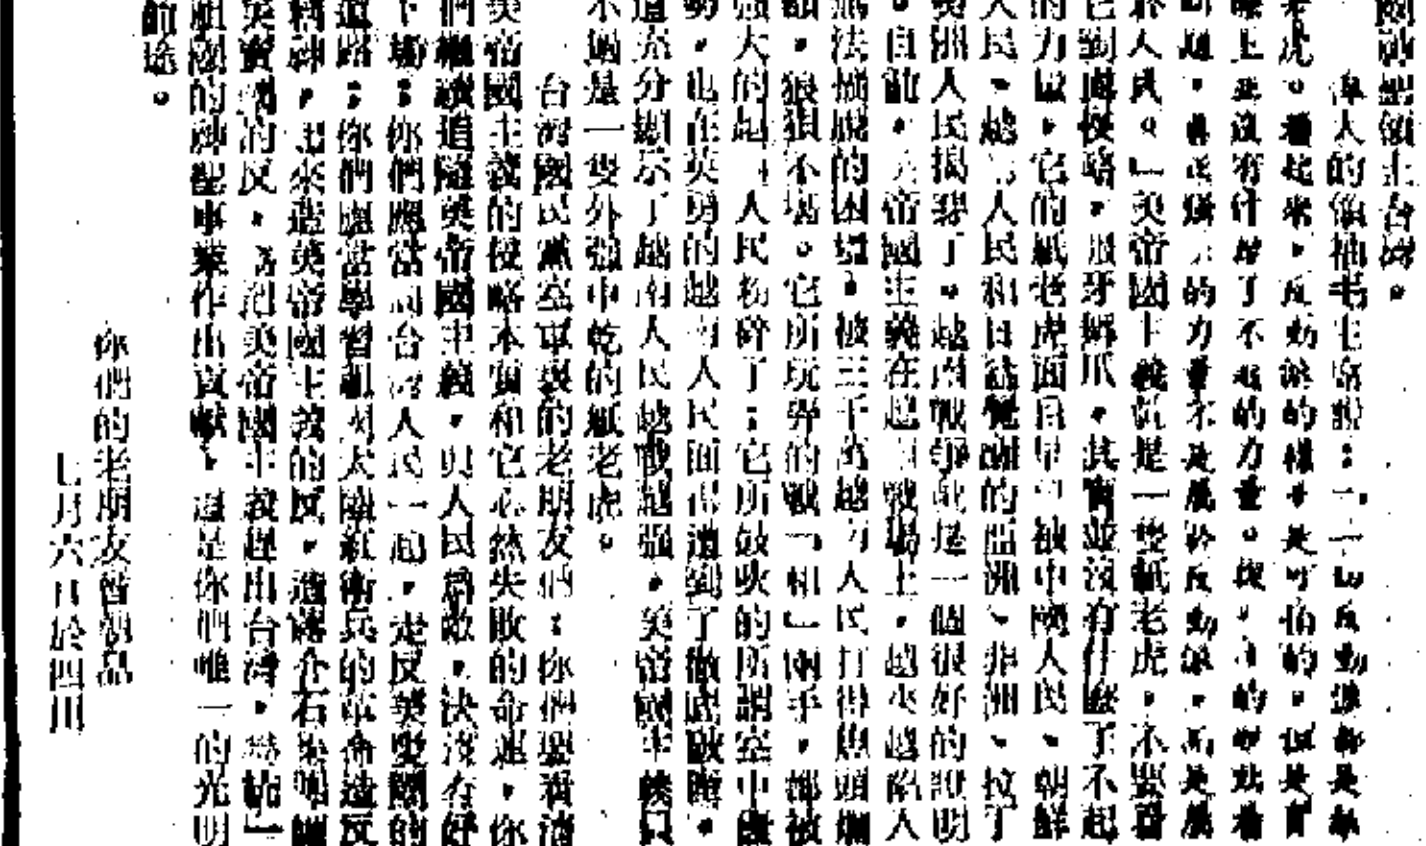 領土台灣。
偉人的領袖毛主席說：「一切反動派都是紙
老虎。看起來，反動派的樣子是可怕的，但是實
際上並沒有什麼了不起的力量。從長的觀點看
問題，真正強大的力量不是屬於反動派，而是屬
於人民。」美帝國主義就是一隻紙老虎，不要看
它到處侵略，張牙舞爪，其實並沒有什麼了不起
的力量，它的紙老虎面目早已被中國人民、朝鮮
人民、越南人民和日益覺醒的亞洲、非洲、拉丁
美洲人民揭穿了。越南戰爭就是一個很好的證明
。目前，美帝國主義在越南戰場上，越來越陷入
無法擺脫的困境，被三千萬越南人民打得焦頭爛
額，狼狽不堪。它所玩弄的戰「和」兩手，都被
強大的越南人民粉碎了；它所鼓吹的所謂空中優
勢，也在英勇的越南人民面前遭到了徹底破產。
這充分顯示了越南人民越戰越強，美帝國主義只
不過是一隻外強中乾的紙老虎。
台灣國民黨空軍裏的老朋友們：你們要看清
美帝國主義的侵略本質和它必然失敗的命運，你
們繼續追隨美帝國主義，與人民為敵，決沒有好
下場；你們應當同台灣人民一起，走反美愛國的
道路；你們應當學習祖國大陸紅衛兵的革命造反
精神，起來造美帝國主義的反，造蔣介石集團
美賣國的反，為把美帝國主義趕出台灣，為統一
祖國的神聖事業作出貢獻，這是你們唯一的光明
前途。
你們的老朋友
七月六日於四川